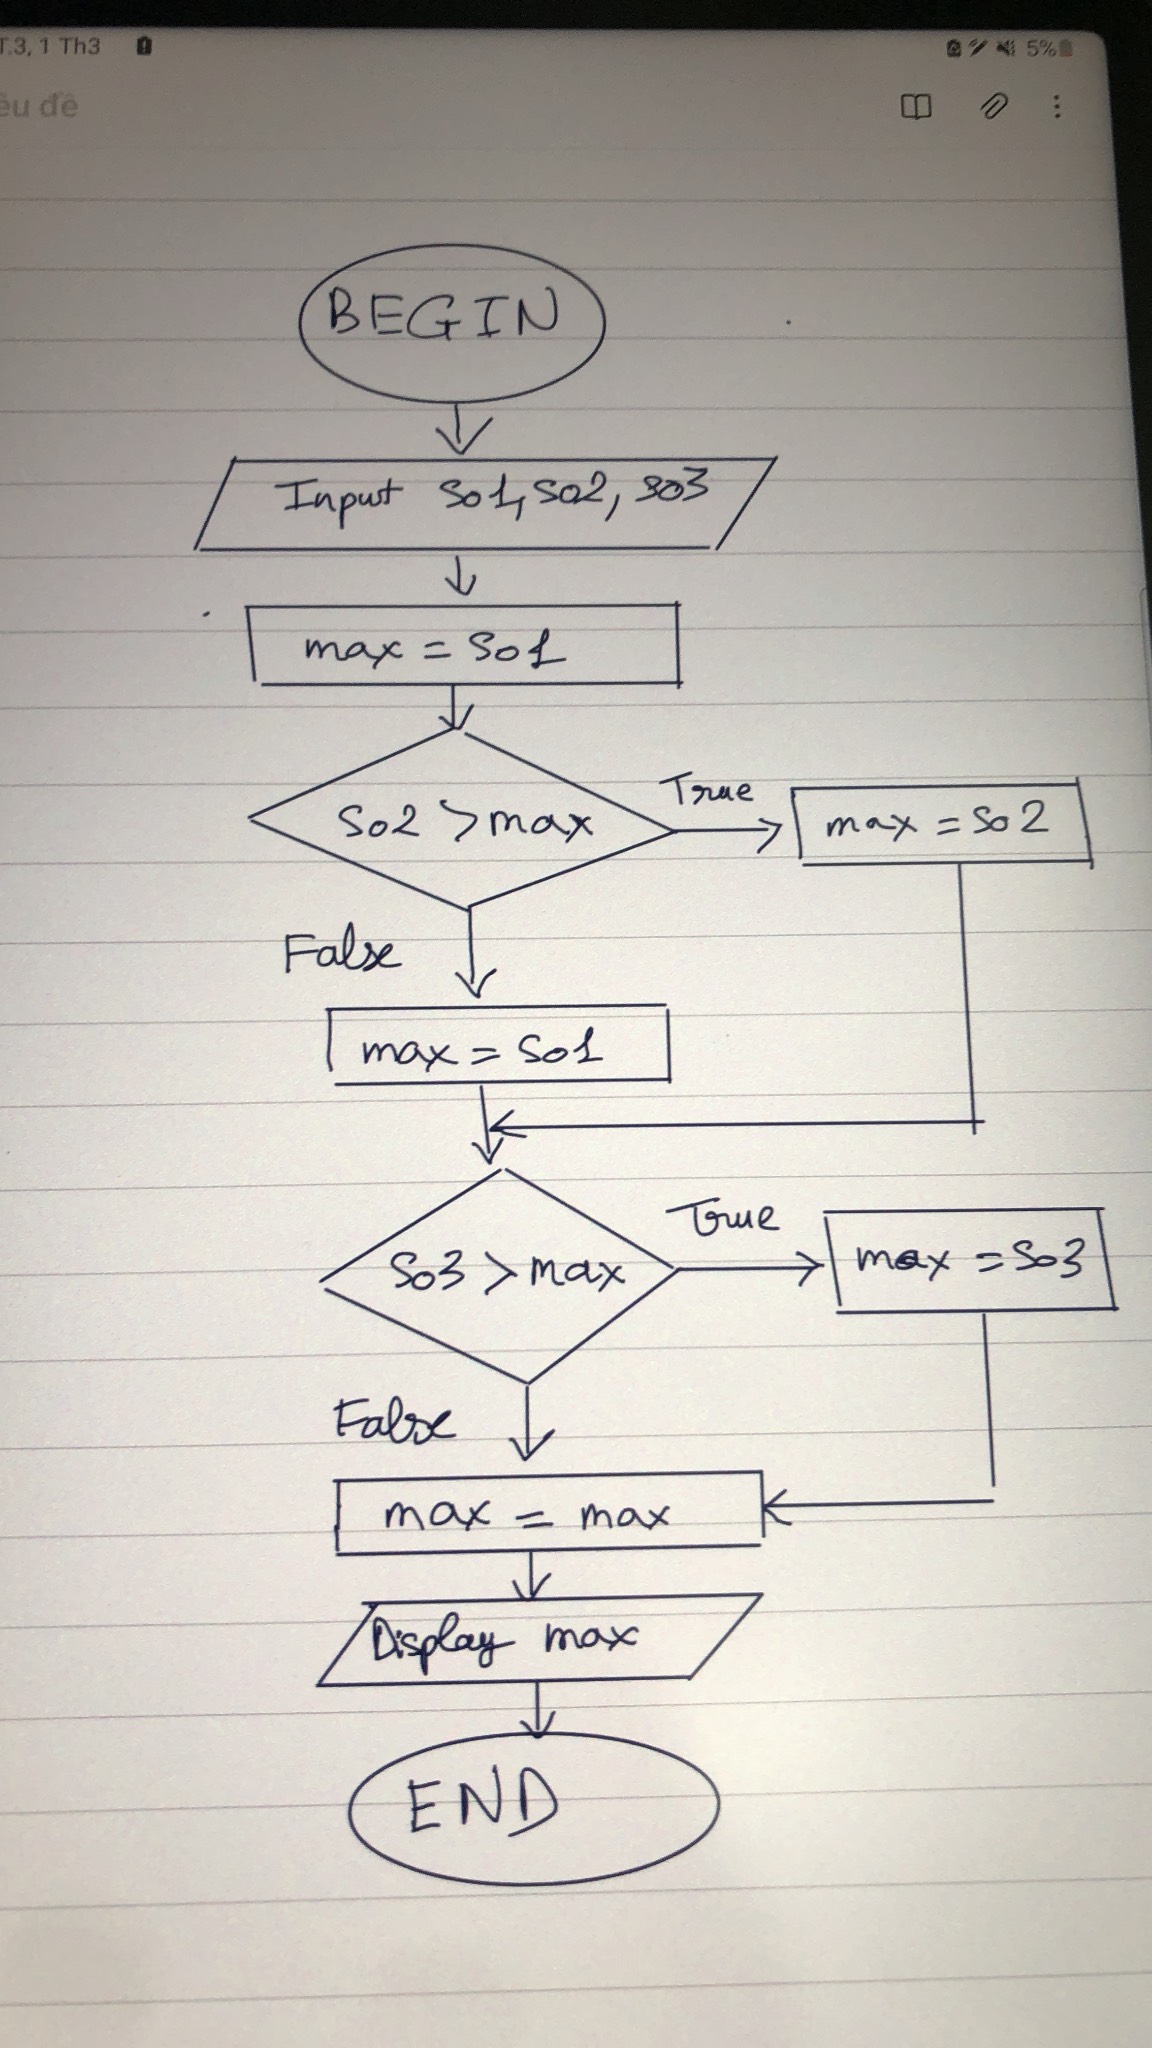 T.3, 1 Th3
5%
êu đề
BEGIN
Input So1, So2, So3
max = So1
So2 > max
True
max = So2
False
max = So1
So3 > max
True
max = So3
False
max = max
Display max
END